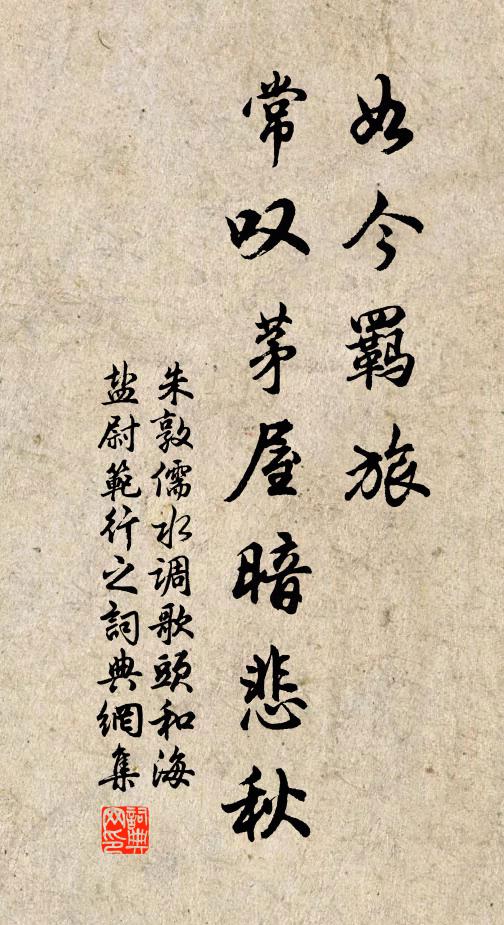 如今羁旅
常叹茅屋暗悲秋
朱敦儒水调歌頭和海
盐尉範行之詞典網集
詞典
网印